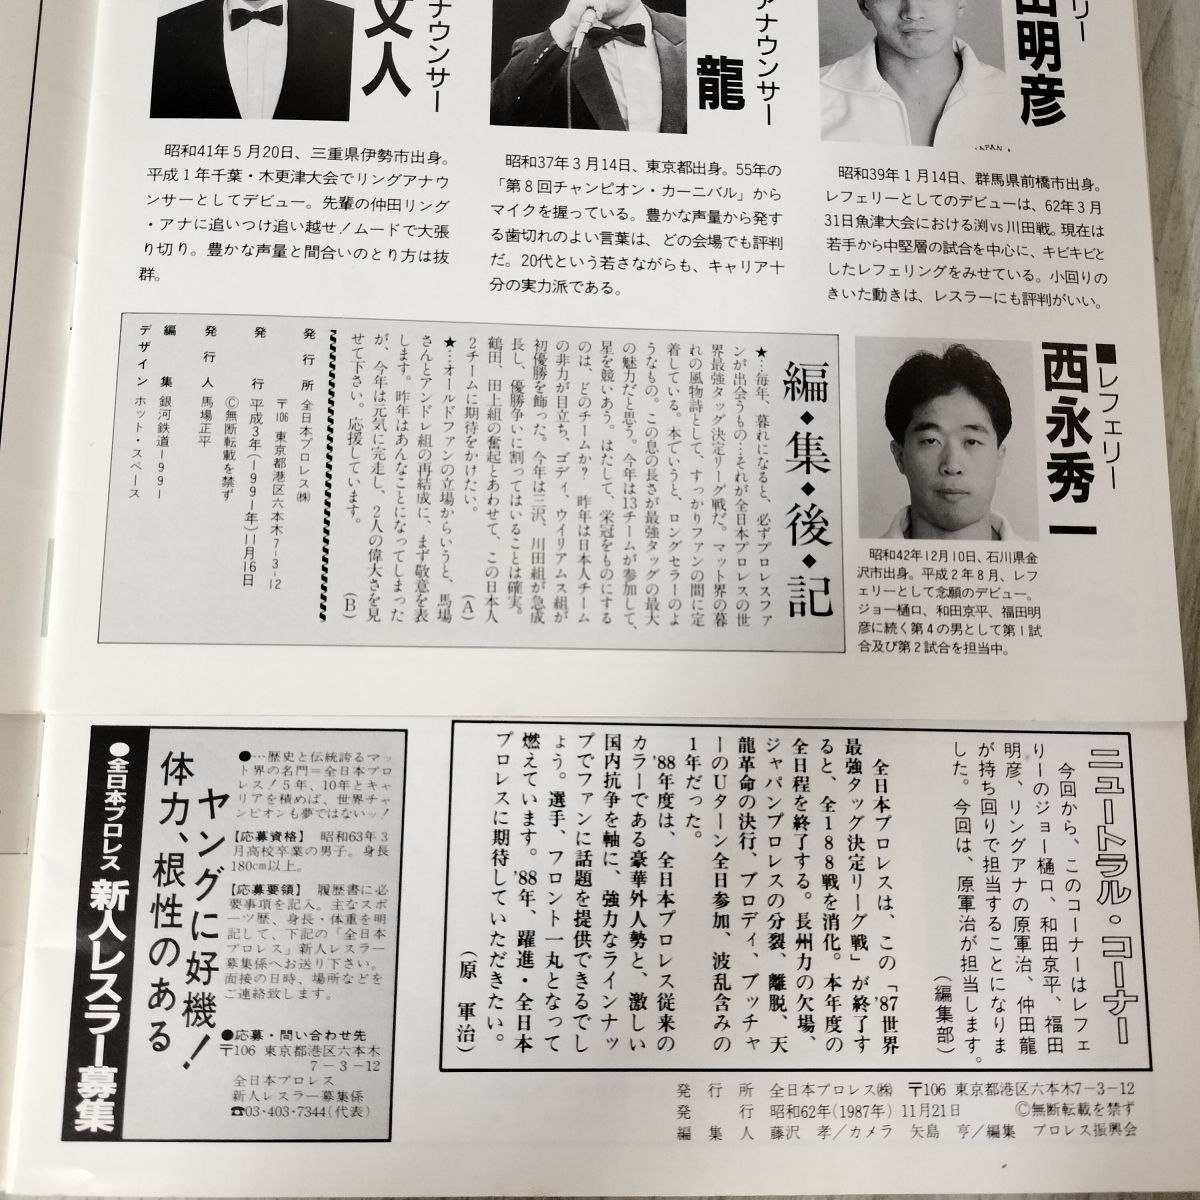 リー
田明彦
アナウンサー
龍
ナウンサー
文人
JAPAN
昭和39年1月14日、群馬県前橋市出身。
レフェリーとしてのデビューは、62年3月
31日魚津大会における渕vs川田戦。現在は
若手から中堅層の試合を中心に、キビキビと
したレフェリングをみせている。小回りの
きいた動きは、レスラーにも評判がいい。
昭和37年3月14日、東京都出身。55年の
「第8回チャンピオン・カーニバル」から
マイクを握っている。豊かな声量から発す
る歯切れのよい言葉は、どの会場でも評判
だ。20代という若さながらも、キャリア十
分の実力派である。
昭和41年5月20日、三重県伊勢市出身。
平成1年千葉・木更津大会でリングアナウ
ンサーとしてデビュー。先輩の仲田リング
・アナに追いつけ追い越せ!ムードで大張
り切り。豊かな声量と間合いのとり方は抜
群。
■レフェリー
西永秀一
昭和42年12月10日、石川県金
沢市出身。平成2年8月、レフ
ェリーとして念願のデビュー。
ジョー樋口、和田京平、福田明
彦に続く第4の男として第1試
合及び第2試合を担当中。
編◆集◆後◆記
★…毎年、暮れになると、必ずプロレスファ
ンが出会うもの…それが全日本プロレスの世
界最強タッグ決定リーグ戦だ。マット界の暮
れの風物詩として、すっかりファンの間に定
着している。本でいうと、ロングセラーのよ
うなもの。この息の長さが最強タッグの最大
の魅力だと思う。今年は13チームが参加して、
星を競いあう。はたして、栄冠をものにする
のは、どのチームか?昨年は日本人チーム
の非力が目立ち、ゴディ、ウイリアムス組が
初優勝を飾った。今年は三沢、川田組が急成
長し、優勝争いに割ってはいることは確実。
鶴田、田上組の奮起とあわせて、この日本人
2チームに期待をかけたい。(A)
★…オールドファンの立場からいうと、馬場
さんとアンドレ組の再結成に、まず敬意を表
します。昨年はあんなことになってしまった
が、今年は元気に完走し、2人の偉大さを見
せて下さい。応援しています。(B)
発行所 全日本プロレス㈱
〒106 東京都港区六本木7-3-12
発行 平成3年(1991年)11月16日
Ⓒ無断転載を禁ず
発行人 馬場正平
編集 銀河鉄道1991
デザイン ホット・スペース
ニュートラル・コーナー
今回から、このコーナーはレフェ
リーのジョー樋口、和田京平、福田
明彦、リングアナの原軍治、仲田龍
が持ち回りで担当することになりま
した。今回は、原軍治が担当します。
(編集部)
全日本プロレスは、この「'87世界
最強タッグ決定リーグ戦」が終了す
ると、全188戦を消化。本年度の
全日程を終了する。長州力の欠場、
ジャパンプロレスの分裂、離脱、天
龍革命の決行、ブロディ、ブッチャ
ーのUターン全日参加、波乱含みの
1年だった。
'88年度は、全日本プロレス従来の
カラーである豪華外人勢と、激しい
国内抗争を軸に、強力なラインナッ
プでファンに話題を提供できるでし
ょう。選手、フロント一丸となって
燃えています。'88年、躍進・全日本
プロレスに期待していただきたい。
(原 軍治)
発行所 全日本プロレス㈱ 〒106 東京都港区六本木7-3-12
発行 昭和62年(1987年)11月21日 Ⓒ無断転載を禁ず
編集人 藤沢 孝/カメラ 矢島 亨/編集 プロレス振興会
●全日本プロレス 新人レスラー募集
体力、根性のある
ヤングに好機!
●…歴史と伝統誇るマッ
ト界の名門=全日本プロ
レス!5年、10年とキャ
リアを積めば、世界チャ
ンピオンも夢ではないッ!
【応募資格】 昭和63年3
月高校卒業の男子。身長
180cm以上。
【応募要領】 履歴書に必
要事項を記入。主なスポ
ーツ歴、身長・体重を明
記して、下記の「全日本
プロレス」新人レスラー
募集係へお送り下さい。
面接の日時、場所などを
ご連絡致します。
●応募・問い合わせ先
〒106 東京都港区六本木
7-3-12
全日本プロレス
新人レスラー募集係
☎03・403・7344(代表)